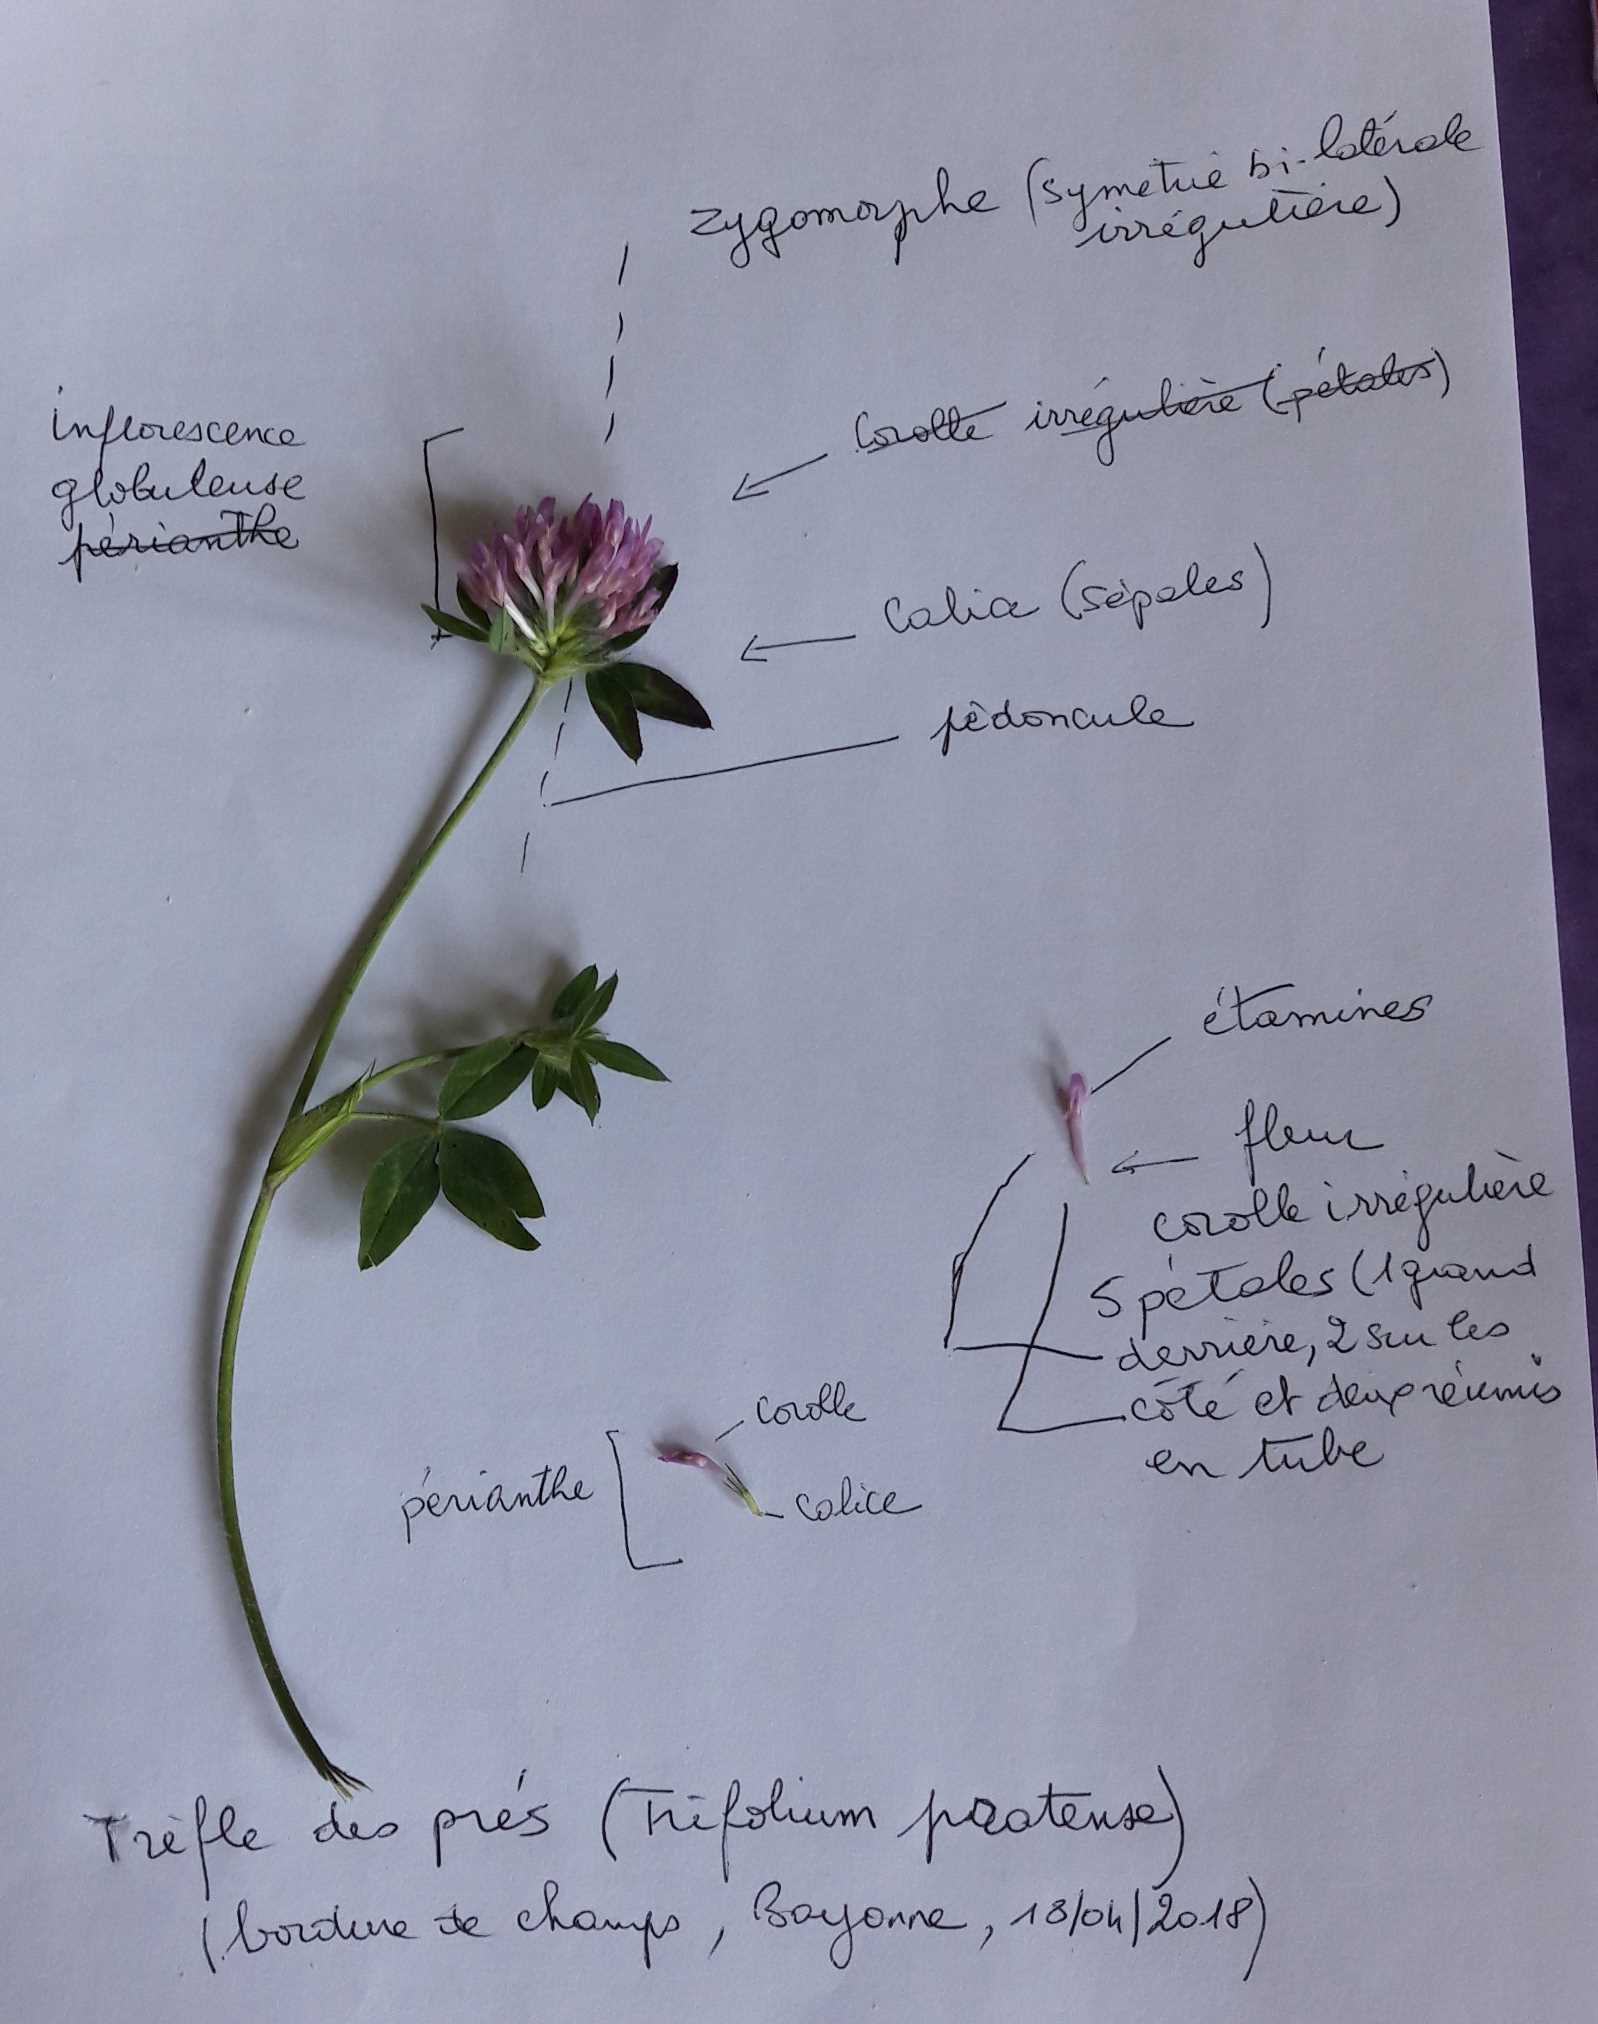 zygomorphe (symetrie bi-latérale
irrégulière)
inflorescence
globuleuse
périanthe
Corolle irrégulière (pétales)
Calice (sépales)
pédoncule
étamines
fleur
corolle irrégulière
5 pétales (1 grand
derrière, 2 sur les
côté et deux réunis
en tube
corolle
périanthe
calice
Trèfle des prés (Trifolium pratense)
(bordure de champs, Bayonne, 18/04/2018)